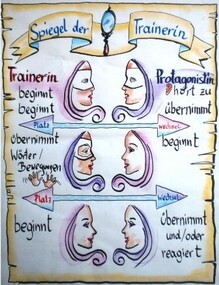 Spiegel der Trainerin
Trainerin Protagonistin
beginnt hört zu
beginnt übernimmt
Platz wechsel
übernimmt beginnt
Wörter/
Bewegungen
Platz wechsel
beginnt übernimmt
und/oder
reagiert